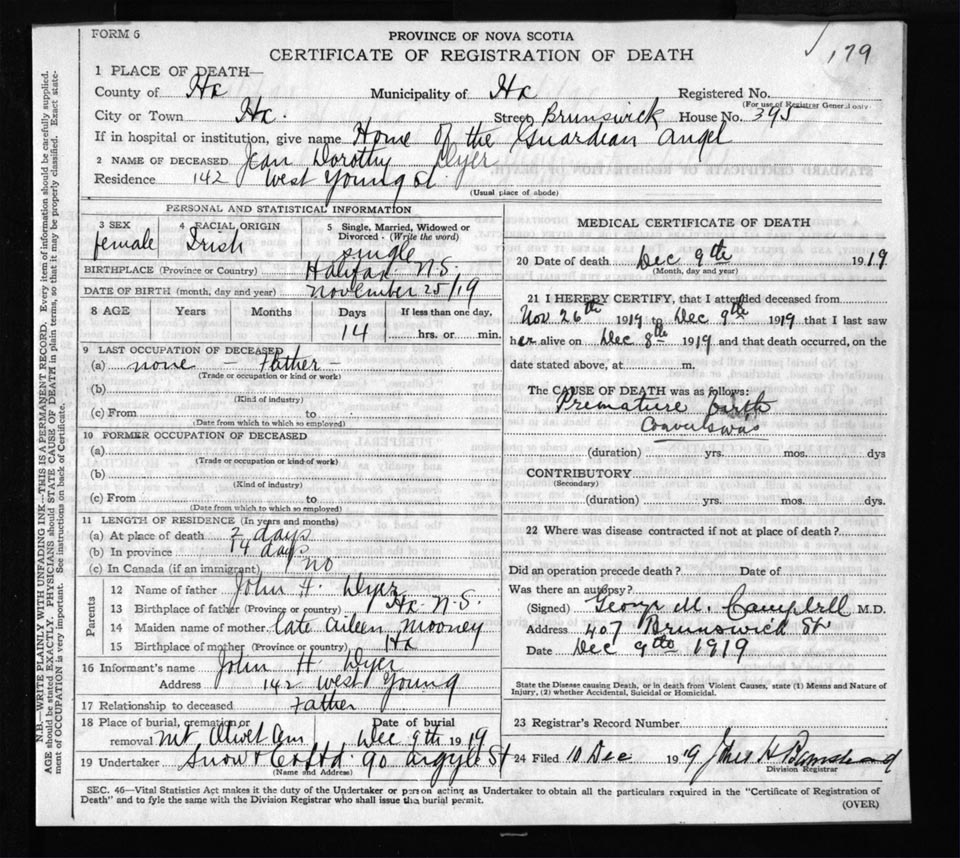 FORM 6
PROVINCE OF NOVA SCOTIA
CERTIFICATE OF REGISTRATION OF DEATH
179
1 PLACE OF DEATH—
County of Hx Municipality of Hx Registered No.
(For use of Registrar General only)
City or Town Hx. Street Brunswick House No. 395
If in hospital or institution, give name Home of the Guardian Angel
2 NAME OF DECEASED Jean Dorothy Dyer
Residence 142 West Young St.
(Usual place of abode)
PERSONAL AND STATISTICAL INFORMATION
3 SEX female
4 RACIAL ORIGIN Irish
5 Single, Married, Widowed or Divorced. (Write the word) single
BIRTHPLACE (Province or Country) Halifax N.S.
DATE OF BIRTH (month, day and year) November 25/19
8 AGE Years Months Days 14 If less than one day, hrs. or min.
9 LAST OCCUPATION OF DECEASED
(a) none — Father —
(Trade or occupation or kind or work)
(b)
(Kind of industry)
(c) From to
(Date from which to which so employed)
10 FORMER OCCUPATION OF DECEASED
(a)
(Trade or occupation or kind of work)
(b)
(Kind of industry)
(c) From to
(Date from which to which so employed)
11 LENGTH OF RESIDENCE (In years and months)
(a) At place of death 2 days
(b) In province 14 days
(c) In Canada (if an immigrant) no
Parents
12 Name of father John H. Dyer
13 Birthplace of father (Province or country) Hx. N.S.
14 Maiden name of mother late Aileen Mooney
15 Birthplace of mother (Province or country) Hx
16 Informant's name John H. Dyer
Address 142 West Young
17 Relationship to deceased Father
18 Place of burial, cremation or removal Mt Olivet Cem Date of burial Dec 9th 1919
19 Undertaker Snow & Co Ltd. 90 Argyle St
(Name and Address)
MEDICAL CERTIFICATE OF DEATH
20 Date of death Dec 9th 1919
(Month, day and year)
21 I HEREBY CERTIFY, that I attended deceased from
Nov 26th 1919 to Dec 9th 1919 that I last saw
her alive on Dec 8th 1919 and that death occurred, on the
date stated above, at m.
The CAUSE OF DEATH was as follows:
Premature birth
Convulsions
(duration) yrs. mos. dys
CONTRIBUTORY
(Secondary)
(duration) yrs. mos. dys.
22 Where was disease contracted if not at place of death?
Did an operation precede death? Date of
Was there an autopsy?
(Signed) George M. Campbell M.D.
Address 407 Brunswick St
Date Dec 9th 1919
State the Disease causing Death, or in death from Violent Causes, state (1) Means and Nature of
Injury, (2) whether Accidental, Suicidal or Homicidal.
23 Registrar's Record Number
24 Filed 10 Dec 19
Division Registrar
SEC. 46—Vital Statistics Act makes it the duty of the Undertaker or person acting as Undertaker to obtain all the particulars required in the "Certificate of Registration of
Death" and to fyle the same with the Division Registrar who shall issue the burial permit.
(OVER)
N.B.—WRITE PLAINLY WITH UNFADING INK—THIS IS A PERMANENT RECORD. Every item of information should be carefully supplied.
AGE should be stated EXACTLY. PHYSICIANS should STATE CAUSE OF DEATH in plain terms, so that it may be properly classified. Exact state-
ment of OCCUPATION is very important. See instructions on back of Certificate.